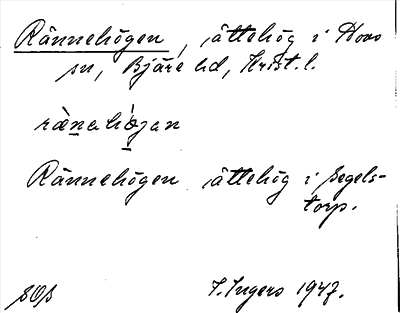 Rännehögen, ättehög i Hovs
sn, Bjäre hd, Krist.l.
rä̀nahø̀gan
Rännehögen ättehög i Segels-
torp.
I. Ingers 1947.